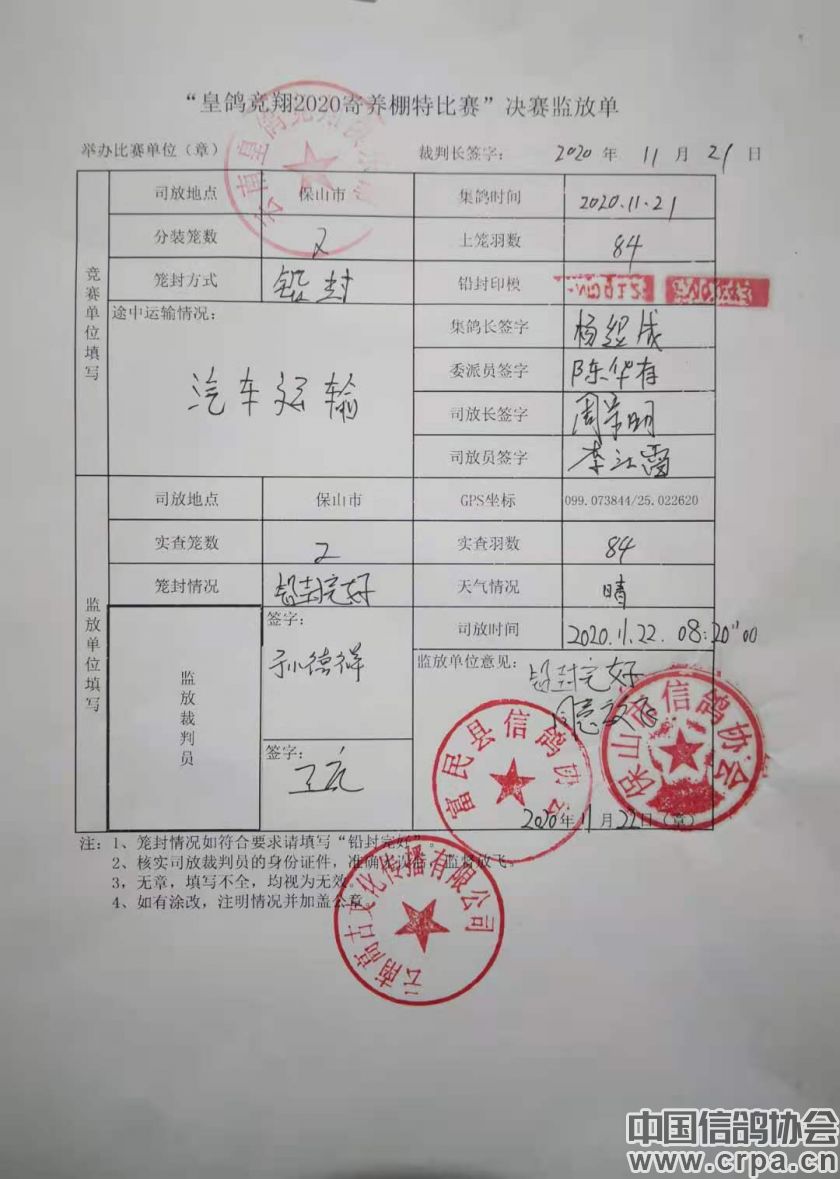 “皇鸽竞翔2020寄养棚特比赛”决赛监放单
举办比赛单位（章） 裁判长签字： 2020 年 11 月 21 日
竞赛单位填写
司放地点 保山市 集鸽时间 2020.11.21
分装笼数 2 上笼羽数 84
笼封方式 铅封 铅封印模
途中运输情况： 集鸽长签字 杨绍成
汽车运输
委派员签字 陈华存
司放长签字 周荣明
司放员签字 李江雷
监放单位填写
司放地点 保山市 GPS坐标 099.073844/25.022620
实查笼数 2 实查羽数 84
笼封情况 铅封完好 天气情况 晴
监放裁判员
签字： 司放时间 2020.11.22. 08:20'00
孙德祥
监放单位意见： 铅封完好
同意放飞
签字：
2020年11月22日（章）
富民县信鸽协会
保山市信鸽协会
注：1、笼封情况如符合要求请填写“铅封完好”。
2、核实司放裁判员的身份证件，准确无误后，监督放飞。
3，无章，填写不全，均视为无效。
4、如有涂改，注明情况并加盖公章。
云南高古文化传播有限公司
中国信鸽协会
www.crpa.cn